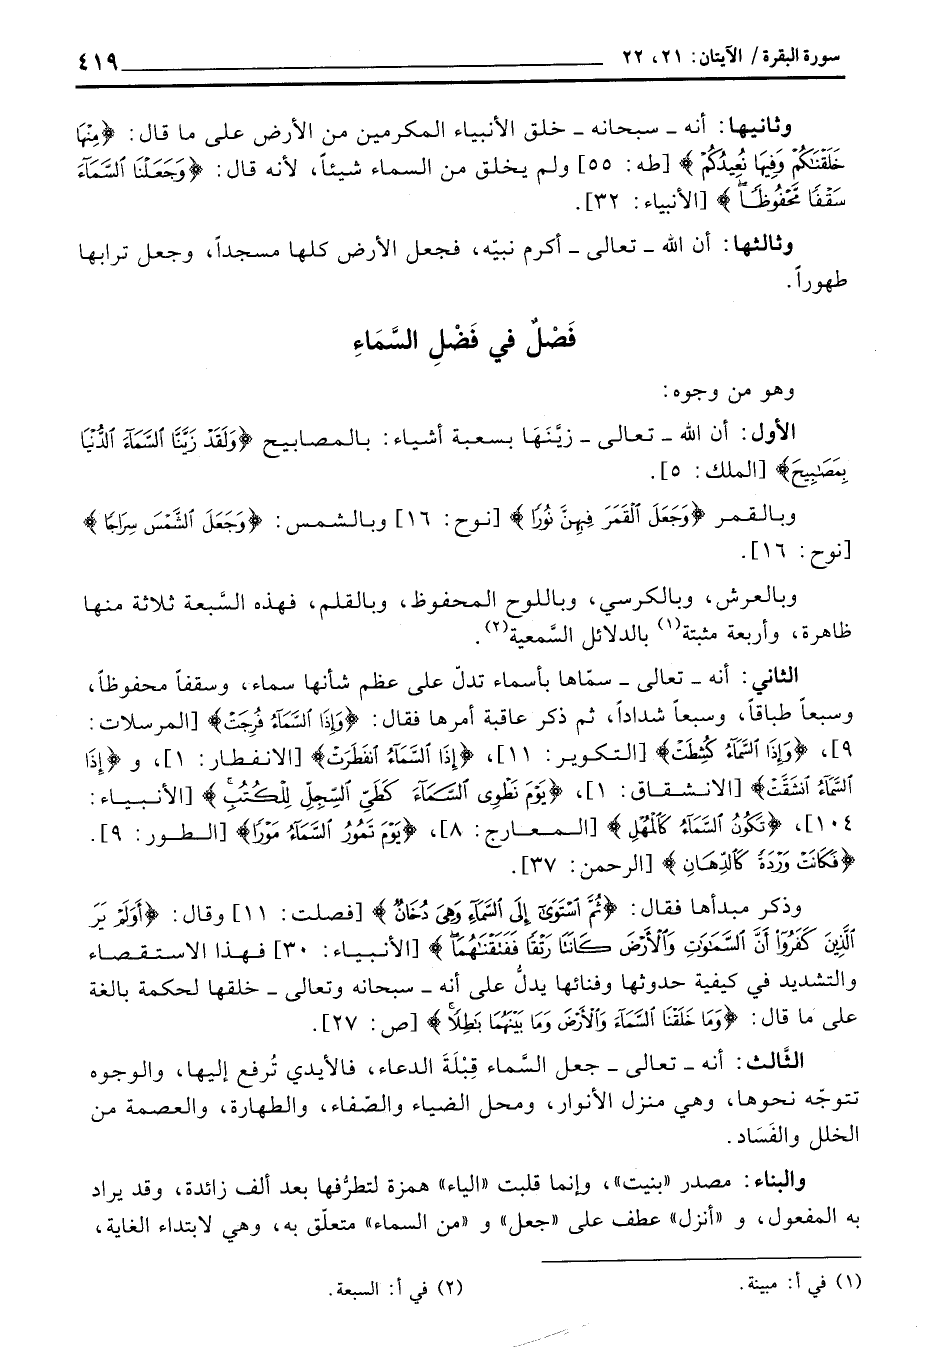 سورة البقرة/ الآيتان: ٢١، ٢٢ ٤١٩
وثانيها: أنه ـ سبحانه ـ خلق الأنبياء المكرمين من الأرض على ما قال: ﴿مِنْهَا
خَلَقْنَٰكُمْ وَفِيهَا نُعِيدُكُمْ﴾ [طه: ٥٥] ولم يخلق من السماء شيئاً، لأنه قال: ﴿وَجَعَلْنَا ٱلسَّمَآءَ
سَقْفًا مَّحْفُوظًا﴾ [الأنبياء: ٣٢].
وثالثها: أن الله ـ تعالى ـ أكرم نبيّه، فجعل الأرض كلها مسجداً، وجعل ترابها
طهوراً.
فَصْلٌ في فَضْلِ السَّمَاءِ
وهو من وجوه:
الأول: أن الله ـ تعالى ـ زيَّنَهَا بسعبة أشياء: بالمصابيح ﴿وَلَقَدْ زَيَّنَّا ٱلسَّمَآءَ ٱلدُّنْيَا
بِمَصَٰبِيحَ﴾ [الملك: ٥].
وبالقمر ﴿وَجَعَلَ ٱلْقَمَرَ فِيهِنَّ نُورًا﴾ [نوح: ١٦] وبالشمس: ﴿وَجَعَلَ ٱلشَّمْسَ سِرَاجًا﴾
[نوح: ١٦].
وبالعرش، وبالكرسي، وباللوح المحفوظ، وبالقلم، فهذه السَّبعة ثلاثة منها
ظاهرة، وأربعة مثبتة(١) بالدلائل السَّمعية(٢).
الثاني: أنه ـ تعالى ـ سمّاها بأسماء تدلّ على عظم شأنها سماء، وسقفاً محفوظاً،
وسبعاً طباقاً، وسبعاً شداداً، ثم ذكر عاقبة أمرها فقال: ﴿وَإِذَا ٱلسَّمَآءُ فُرِجَتْ﴾ [المرسلات:
٩]، ﴿وَإِذَا ٱلسَّمَآءُ كُشِطَتْ﴾ [التكوير: ١١]، ﴿إِذَا ٱلسَّمَآءُ ٱنفَطَرَتْ﴾ [الانفطار: ١]، و ﴿إِذَا
ٱلسَّمَآءُ ٱنشَقَّتْ﴾ [الانشقاق: ١]، ﴿يَوْمَ نَطْوِى ٱلسَّمَآءَ كَطَىِّ ٱلسِّجِلِّ لِلْكُتُبِ﴾ [الأنبياء:
١٠٤]، ﴿تَكُونُ ٱلسَّمَآءُ كَٱلْمُهْلِ﴾ [المعارج: ٨]، ﴿يَوْمَ تَمُورُ ٱلسَّمَآءُ مَوْرًا﴾ [الطور: ٩].
﴿فَكَانَتْ وَرْدَةً كَٱلدِّهَانِ﴾ [الرحمن: ٣٧].
وذكر مبدأها فقال: ﴿ثُمَّ ٱسْتَوَىٰٓ إِلَى ٱلسَّمَآءِ وَهِىَ دُخَانٌ﴾ [فصلت: ١١] وقال: ﴿أَوَلَمْ يَرَ
ٱلَّذِينَ كَفَرُوٓا۟ أَنَّ ٱلسَّمَٰوَٰتِ وَٱلْأَرْضَ كَانَتَا رَتْقًا فَفَتَقْنَٰهُمَا﴾ [الأنبياء: ٣٠] فهذا الاستقصاء
والتشديد في كيفية حدوثها وفنائها يدلُّ على أنه ـ سبحانه وتعالى ـ خلقها لحكمة بالغة
على ما قال: ﴿وَمَا خَلَقْنَا ٱلسَّمَآءَ وَٱلْأَرْضَ وَمَا بَيْنَهُمَا بَٰطِلًا﴾ [ص: ٢٧].
الثَّالث: أنه ـ تعالى ـ جعل السَّماء قِبْلَةَ الدعاء، فالأيدي تُرفع إليها، والوجوه
تتوجّه نحوها، وهي منزل الأنوار، ومحل الضياء والصّفاء، والطهارة، والعصمة من
الخلل والفَسَاد.
والبناء: مصدر «بنيت»، وإنما قلبت «الياء» همزة لتطرُّفها بعد ألف زائدة، وقد يراد
به المفعول، و «أنزل» عطف على «جعل» و «من السماء» متعلّق به، وهي لابتداء الغاية،
(١) في أ: مبينة. (٢) في أ: السبعة.